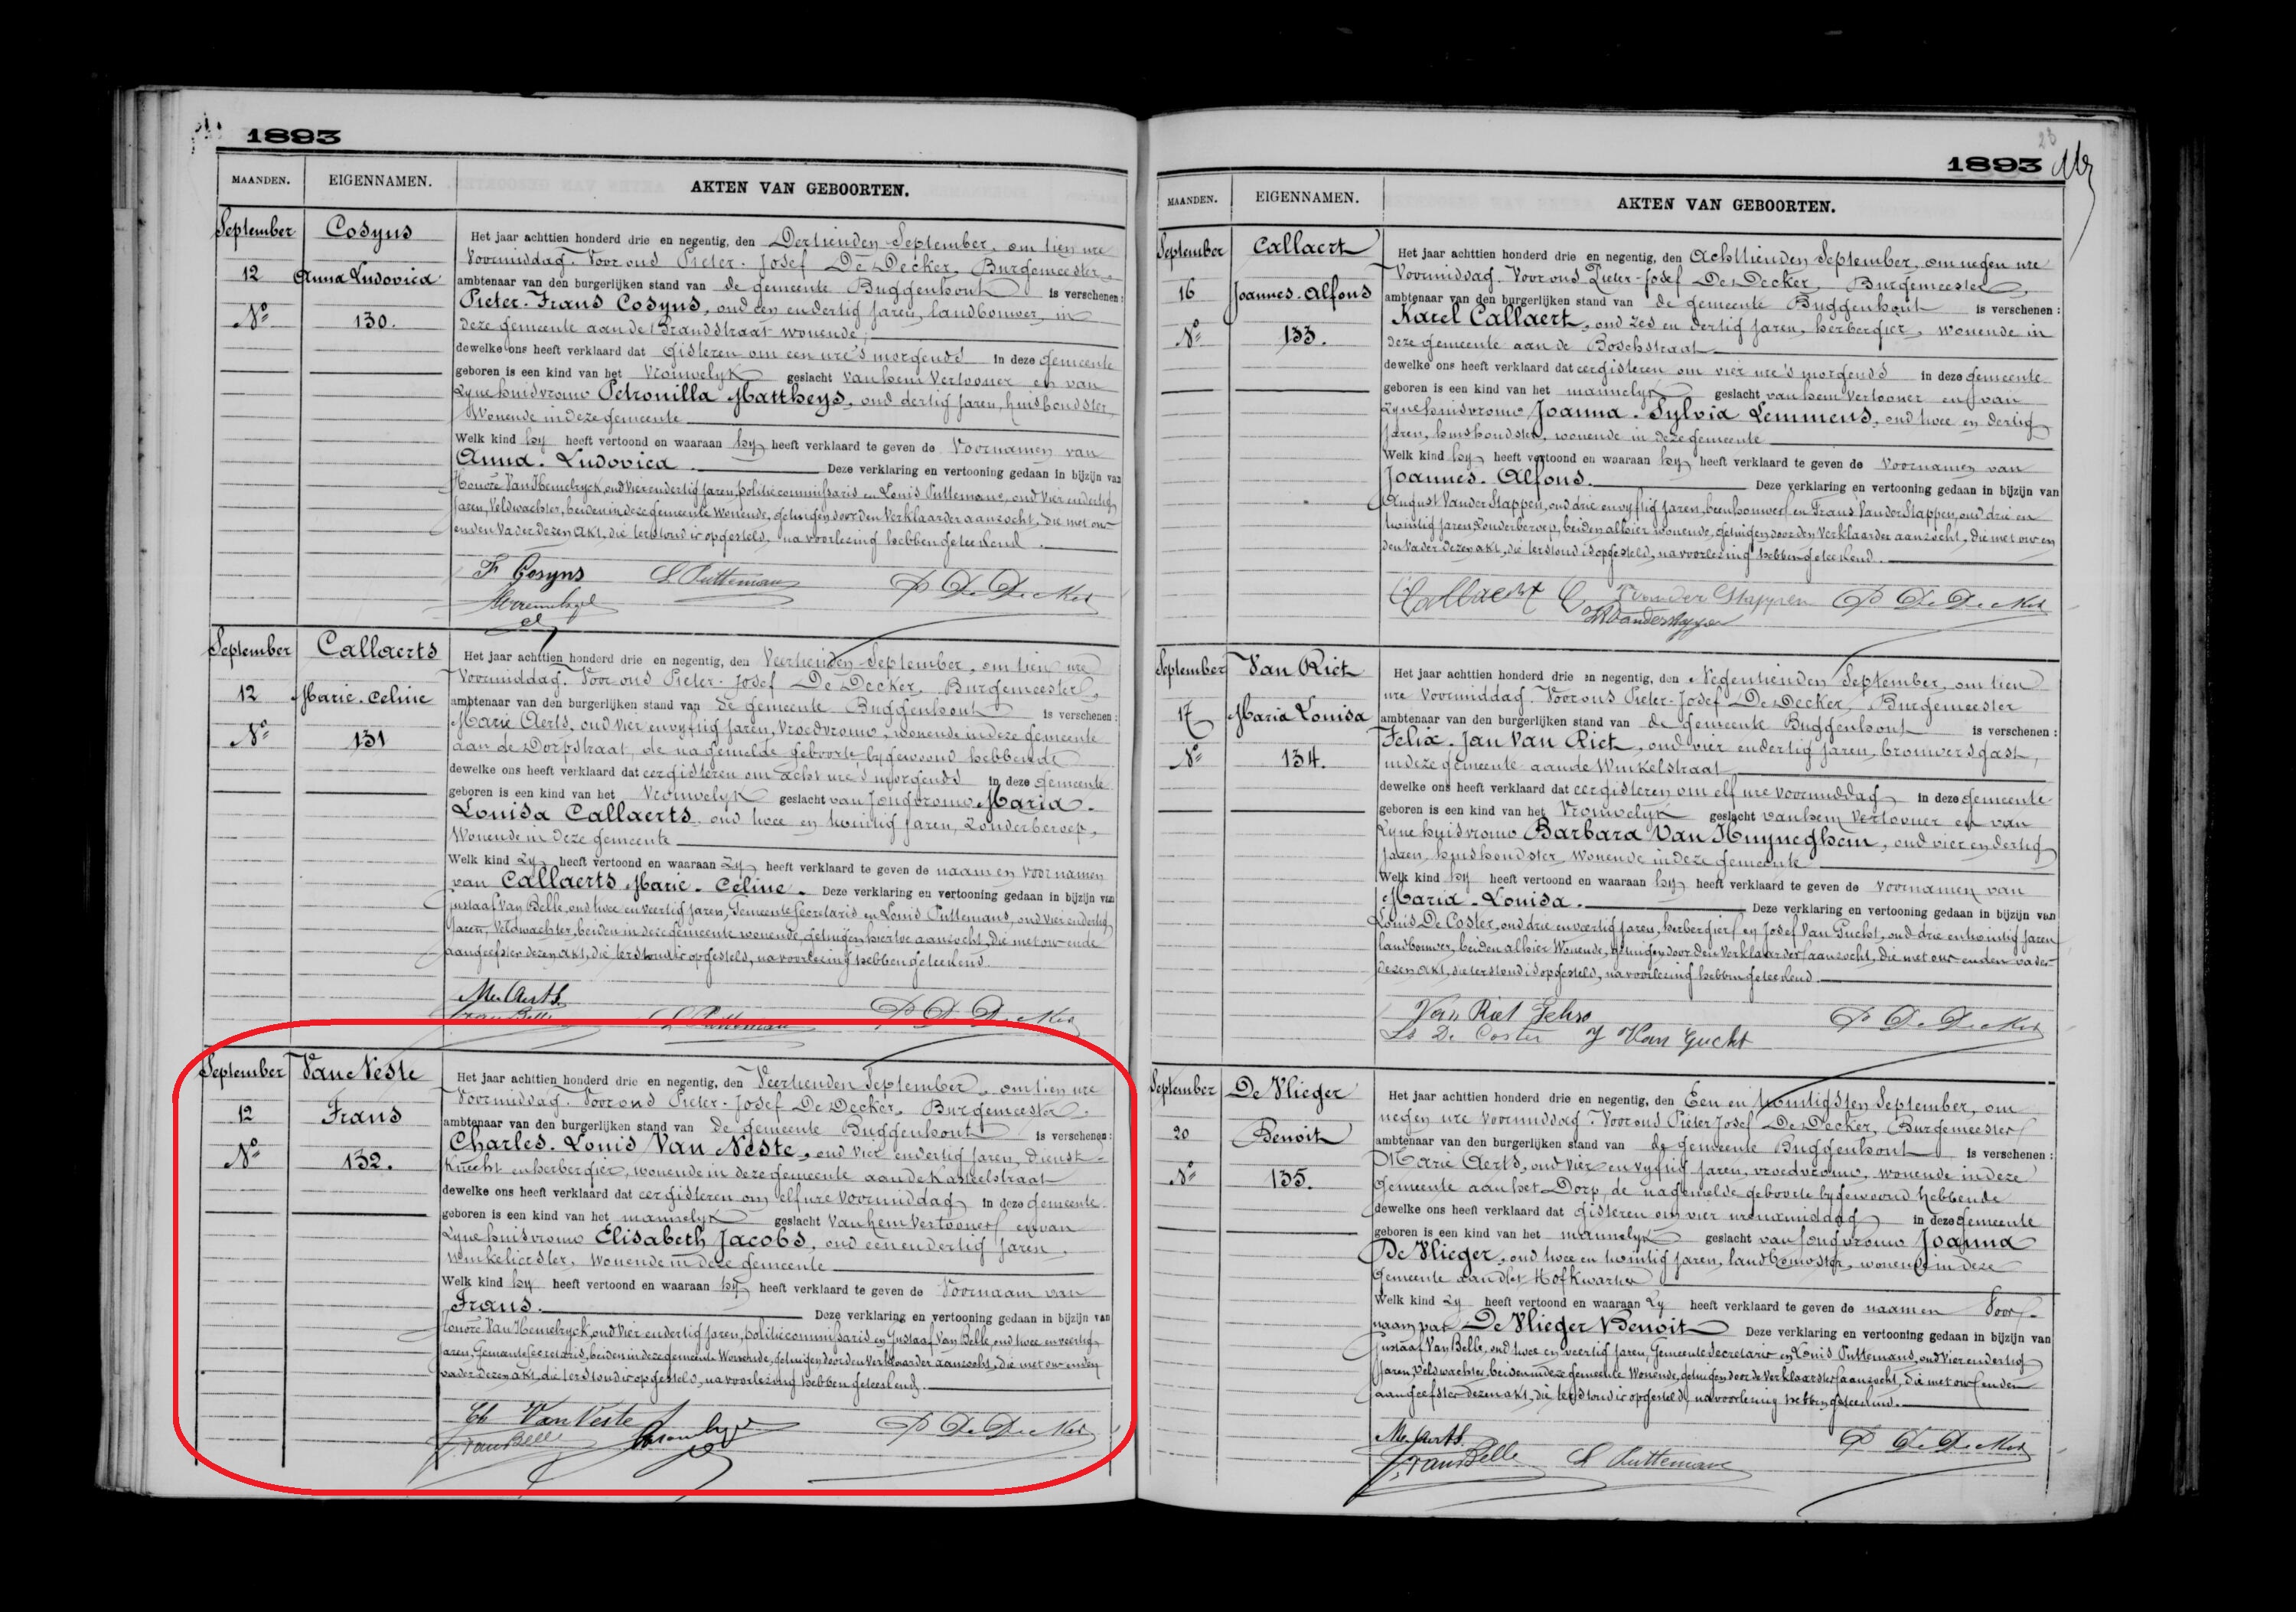 1893
MAANDEN. EIGENNAMEN. AKTEN VAN GEBOORTEN.
September
12
Nº
Cosyns
Anna Ludovica
130.
Het jaar achttien honderd drie en negentig, den Dertienden September, om tien ure
Voormiddag. Voor ons Pieter-Josef De Decker, Burgemeester,
ambtenaar van den burgerlijken stand van de gemeente Buggenhout is verschenen:
Pieter-Frans Cosyns, oud een en dertig jaren, landbouwer, in
deze gemeente aan de Brandstraat wonende;
dewelke ons heeft verklaard dat gisteren om een ure 's morgends in deze gemeente
geboren is een kind van het vrouwelyk geslacht van hem vertooner en van
zyne huisvrouw Petronilla Mattheys, oud dertig jaren, huishoudster,
wonende in deze gemeente
Welk kind hy heeft vertoond en waaraan hy heeft verklaard te geven de voornamen van
Anna-Ludovica. Deze verklaring en vertooning gedaan in bijzijn van
Honoré Van Hemelryck, oud vier en dertig jaren, politiecommissaris en Louis Puttemans, oud vier en dertig
jaren, Veldwachter, beiden in deze gemeente wonende, getuigen door den verklaarder aanzocht, die met ons
en den vader dezen akt, die terstond is opgesteld, na voorlezing hebben geteekend.
F Cosyns L Puttemans P De Decker
September
12
Nº
Callaerts
Marie-Celine
131
Het jaar achttien honderd drie en negentig, den Veertienden September, om tien ure
Voormiddag. Voor ons Pieter-Josef De Decker, Burgemeester,
ambtenaar van den burgerlijken stand van de gemeente Buggenhout is verschenen:
Marie Aerts, oud vier en vyftig jaren, Vroedvrouw, wonende in deze gemeente
aan de Dorpstraat, de nagemelde geboorte bygewoond hebbende
dewelke ons heeft verklaard dat eergisteren om acht ure 's morgends in deze gemeente
geboren is een kind van het Vrouwelyk geslacht van Jongvrouw Maria-
Louisa Callaerts, oud twee en twintig jaren, zonder beroep,
wonende in deze gemeente
Welk kind zy heeft vertoond en waaraan zy heeft verklaard te geven de naam en voornamen
van Callaerts Marie-Celine. Deze verklaring en vertooning gedaan in bijzijn van
Gustaaf Van Belle, oud twee en veertig jaren, Gemeentesecretaris en Louis Puttemans, oud vier en dertig
jaren, Veldwachter, beiden in deze gemeente wonende, getuigen hiertoe aanzocht, die met ons en de
aangeefster dezen akt, die terstond is opgesteld, na voorlezing hebben geteekend.
Me Aerts.
Van Belle L Puttemans P De Decker
September
12
Nº
Van Neste
Frans
132.
Het jaar achttien honderd drie en negentig, den Veertienden September, om tien ure
Voormiddag. Voor ons Pieter-Josef De Decker, Burgemeester,
ambtenaar van den burgerlijken stand van de gemeente Buggenhout is verschenen:
Charles-Louis Van Neste, oud vier en dertig jaren, dienst-
knecht en herbergier, wonende in deze gemeente aan de Kasteelstraat
dewelke ons heeft verklaard dat eergisteren om elf ure voormiddag in deze gemeente
geboren is een kind van het mannelyk geslacht van hem vertooner en van
zyne huisvrouw Elisabeth Jacobs, oud een en dertig jaren,
winkelierster, wonende in deze gemeente
Welk kind hy heeft vertoond en waaraan hy heeft verklaard te geven de Voornaam van
Frans. Deze verklaring en vertooning gedaan in bijzijn van
Honoré Van Hemelryck, oud vier en dertig jaren, politiecommissaris en Gustaaf Van Belle, oud twee en veertig
jaren, Gemeentesecretaris, beiden in deze gemeente wonende, getuigen door den verklaarder aanzocht, die met ons en den
vader dezen akt, die terstond is opgesteld, na voorlezing hebben geteekend.
Ch Van Neste
Van Belle P De Decker
23
1893
MAANDEN. EIGENNAMEN. AKTEN VAN GEBOORTEN.
September
16
Nº
Callaert
Joannes-Alfons
133.
Het jaar achttien honderd drie en negentig, den Achttienden September, om negen ure
Voormiddag. Voor ons Pieter-Josef De Decker, Burgemeester,
ambtenaar van den burgerlijken stand van de gemeente Buggenhout is verschenen:
Karel Callaert, oud zes en dertig jaren, herbergier, wonende in
deze gemeente aan de Boschstraat
dewelke ons heeft verklaard dat eergisteren om vier ure 's morgends in deze gemeente
geboren is een kind van het mannelyk geslacht van hem vertooner en van
zyne huisvrouw Joanna-Sylvia Lemmens, oud twee en dertig
jaren, huishoudster, wonende in deze gemeente
Welk kind hy heeft vertoond en waaraan hy heeft verklaard te geven de voornamen van
Joannes-Alfons. Deze verklaring en vertooning gedaan in bijzijn van
August Van der Stappen, oud drie en vyftig jaren, beenhouwer en Frans Van der Stappen, oud drie en
twintig jaren, zonder beroep, beiden alhier wonende, getuigen door den verklaarder aanzocht, die met ons en
den vader dezen akt, die terstond is opgesteld, na voorlezing hebben geteekend.
Callaert C F van der Stappen P De Decker
A Vanderstappen
September
17
Nº
Van Riet
Maria Louisa
134.
Het jaar achttien honderd drie en negentig, den Negentienden September, om tien
ure Voormiddag. Voor ons Pieter-Josef De Decker, Burgemeester
ambtenaar van den burgerlijken stand van de gemeente Buggenhout is verschenen:
Felix-Jan Van Riet, oud vier en dertig jaren, brouwersgast,
in deze gemeente aan de Winkelstraat
dewelke ons heeft verklaard dat eergisteren om elf ure voormiddag in deze gemeente
geboren is een kind van het Vrouwelyk geslacht van hem vertooner en van
zyne huisvrouw Barbara Van Huyneghem, oud vier en dertig
jaren, huishoudster, wonende in deze gemeente
Welk kind hy heeft vertoond en waaraan hy heeft verklaard te geven de voornamen van
Maria-Louisa. Deze verklaring en vertooning gedaan in bijzijn van
Louis De Coster, oud drie en veertig jaren, herbergier en Josef Van Gucht, oud drie en twintig jaren
landbouwer, beiden alhier wonende, getuigen door den verklaarder aanzocht, die met ons en den vader
dezen akt, die terstond is opgesteld, na voorlezing hebben geteekend.
Van Riet P De Decker
Ls De Coster J Van Gucht
September
20
Nº
De Vlieger
Benoit
135.
Het jaar achttien honderd drie en negentig, den Een en twintigsten September, om
negen ure voormiddag. Voor ons Pieter Josef De Decker, Burgemeester
ambtenaar van den burgerlijken stand van de gemeente Buggenhout is verschenen:
Marie Aerts, oud vier en vyftig jaren, vroedvrouw, wonende in deze
gemeente aan het Dorp, de nagemelde geboorte bygewoond hebbende
dewelke ons heeft verklaard dat gisteren om vier ure namiddag in deze gemeente
geboren is een kind van het mannelyk geslacht van Jongvrouw Joanna
De Vlieger, oud twee en twintig jaren, landbouwster, wonende in deze
gemeente aan het Hofkwartier
Welk kind zy heeft vertoond en waaraan zy heeft verklaard te geven de naam en Voor-
naam van De Vlieger Benoit Deze verklaring en vertooning gedaan in bijzijn van
Gustaaf Van Belle, oud twee en veertig jaren, Gemeentesecretaris en Louis Puttemans, oud vier en dertig
jaren, Veldwachter, beiden in deze gemeente wonende, getuigen door de verklaarster aanzocht, die met ons en de
aangeefster dezen akt, die terstond is opgesteld, na voorlezing hebben geteekend.
Me Aerts. P De Decker
Van Belle L Puttemans